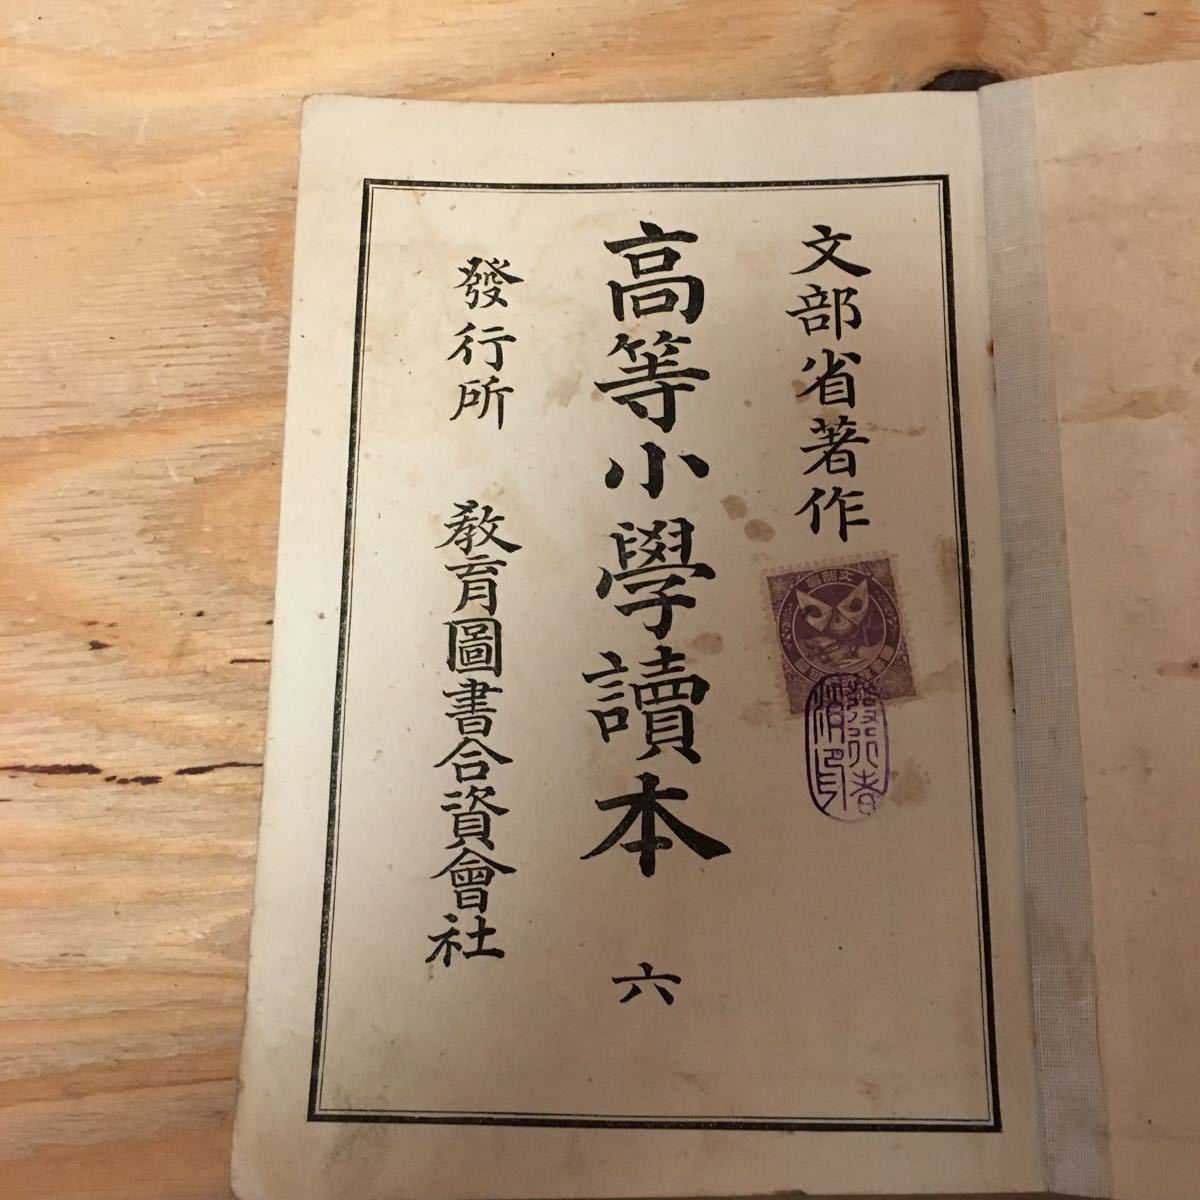 文部省著作
高等小學讀本 六
發行所 教育圖書合資會社
文部省
發行者